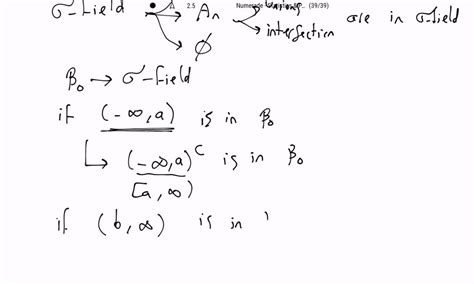 σ-field → Aₙ → intersection are in σ-field
2.5 Numerade (39/39)
ϕ
β₀ → σ-field
if (-∞,a) is in β₀
↳ (-∞,a)ᶜ is in β₀
[a,∞)
if (b,∞) is in